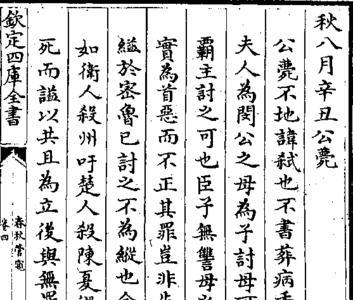 秋八月辛丑公薨
公薨不地諱弑也不書葬病
夫人為閔公之母為子討母可
霸主討之可也臣子無讐母
實為首惡而不正其罪豈非
縊於密魯已討之不為縱也
如衛人殺州吁楚人殺陳夏
死而諡以共且為立後與無
欽定四庫全書
春秋管窺
卷四